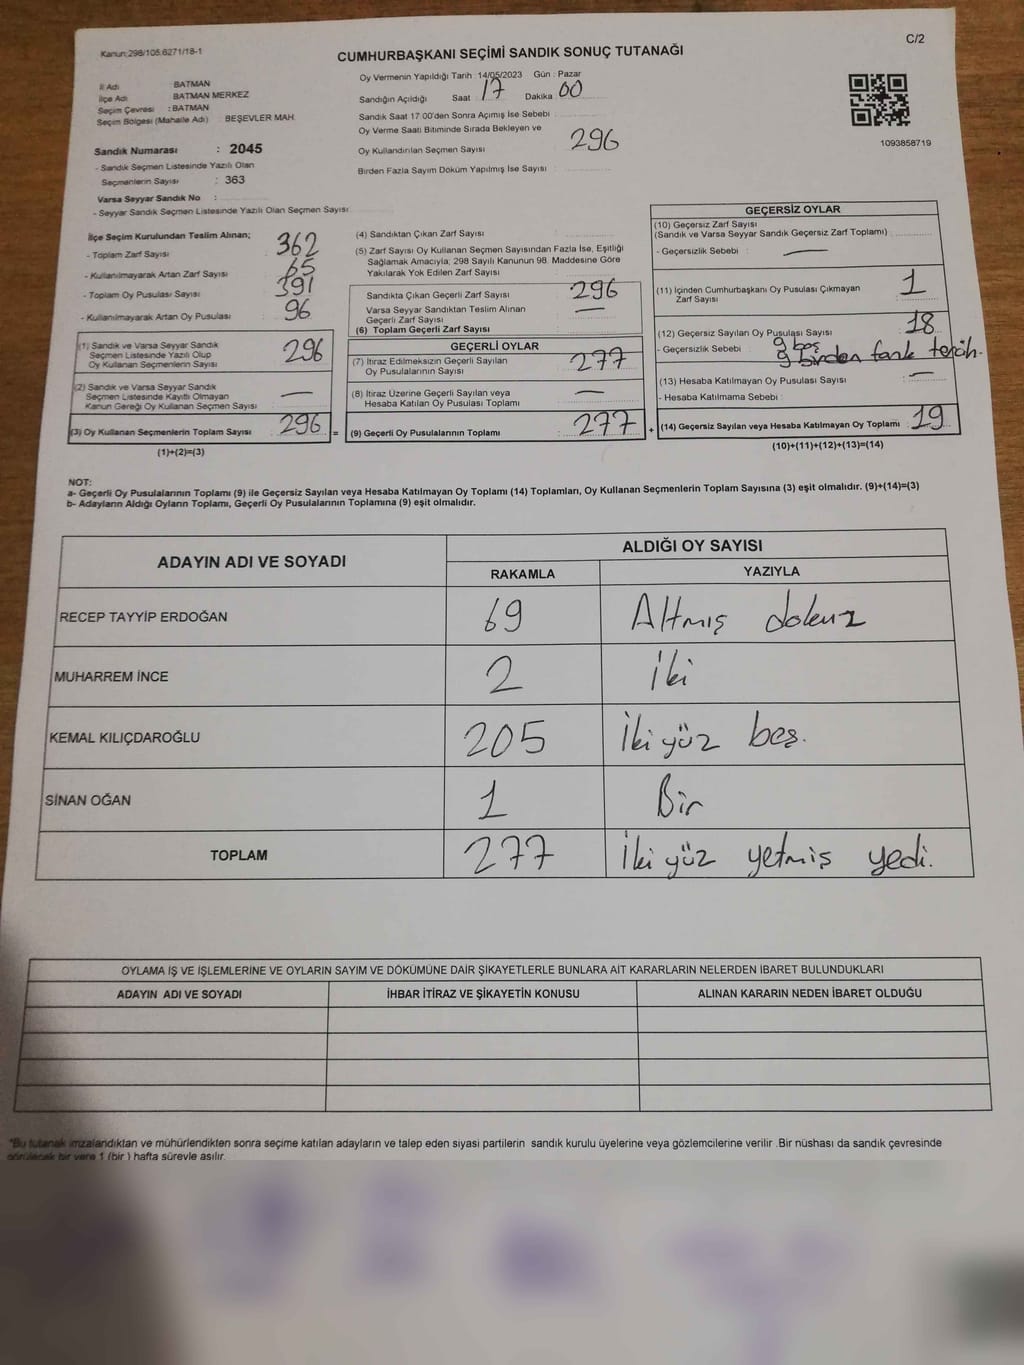 Kanun:298/105.6271/18-1
C/2
CUMHURBAŞKANI SEÇİMİ SANDIK SONUÇ TUTANAĞI
İl Adı BATMAN
İlçe Adı BATMAN MERKEZ
Seçim Çevresi : BATMAN
Seçim Bölgesi (Mahalle Adı) BEŞEVLER MAH.
Oy Vermenin Yapıldığı Tarih : 14/05/2023 Gün : Pazar
Sandığın Açıldığı Saat : 17 Dakika : 00
Sandık Saat 17 00'den Sonra Açımış İse Sebebi :
Oy Verme Saati Bitiminde Sırada Bekleyen ve
Oy Kullandırılan Seçmen Sayısı : 296
Birden Fazla Sayım Döküm Yapılmış İse Sayısı :
1093858719
Sandık Numarası : 2045
- Sandık Seçmen Listesinde Yazılı Olan
Seçmenlerin Sayısı : 363
Varsa Seyyar Sandık No :
- Seyyar Sandık Seçmen Listesinde Yazılı Olan Seçmen Sayısı
İlçe Seçim Kurulundan Teslim Alınan;
- Toplam Zarf Sayısı 362
- Kullanılmayarak Artan Zarf Sayısı 65
- Toplam Oy Pusulası Sayısı 391
- Kullanılmayarak Artan Oy Pusulası 96
(1) Sandık ve Varsa Seyyar Sandık
Seçmen Listesinde Yazılı Olup
Oy Kullanan Seçmenlerin Sayısı 296
(2) Sandık ve Varsa Seyyar Sandık
Seçmen Listesinde Kayıtlı Olmayan
Kanun Gereği Oy Kullanan Seçmen Sayısı : —
(3) Oy Kullanan Seçmenlerin Toplam Sayısı 296 =
(1)+(2)=(3)
(4) Sandıktan Çıkan Zarf Sayısı :
(5) Zarf Sayısı Oy Kullanan Seçmen Sayısından Fazla İse, Eşitliği
Sağlamak Amacıyla; 298 Sayılı Kanunun 98. Maddesine Göre
Yakılarak Yok Edilen Zarf Sayısı :
Sandıkta Çıkan Geçerli Zarf Sayısı : 296
Varsa Seyyar Sandıktan Teslim Alınan
Geçerli Zarf Sayısı : —
(6) Toplam Geçerli Zarf Sayısı :
GEÇERLİ OYLAR
(7) İtiraz Edilmeksizin Geçerli Sayılan
Oy Pusulalarının Sayısı : 277
(8) İtiraz Üzerine Geçerli Sayılan veya
Hesaba Katılan Oy Pusulası Toplamı : —
(9) Geçerli Oy Pusulalarının Toplamı : 277 +
GEÇERSİZ OYLAR
(10) Geçersiz Zarf Sayısı
(Sandık ve Varsa Seyyar Sandık Geçersiz Zarf Toplamı) :
- Geçersizlik Sebebi : —
(11) İçinden Cumhurbaşkanı Oy Pusulası Çıkmayan
Zarf Sayısı : 1
(12) Geçersiz Sayılan Oy Pusulası Sayısı : 18
- Geçersizlik Sebebi : 9 boş
9 birden fazla tercih.
(13) Hesaba Katılmayan Oy Pusulası Sayısı : —
- Hesaba Katılmama Sebebi :
(14) Geçersiz Sayılan veya Hesaba Katılmayan Oy Toplamı : 19
(10)+(11)+(12)+(13)=(14)
NOT:
a- Geçerli Oy Pusulalarının Toplamı (9) ile Geçersiz Sayılan veya Hesaba Katılmayan Oy Toplamı (14) Toplamları, Oy Kullanan Seçmenlerin Toplam Sayısına (3) eşit olmalıdır. (9)+(14)=(3)
b- Adayların Aldığı Oyların Toplamı, Geçerli Oy Pusulalarının Toplamına (9) eşit olmalıdır.
ADAYIN ADI VE SOYADI
ALDIĞI OY SAYISI
RAKAMLA YAZIYLA
RECEP TAYYİP ERDOĞAN 69 Altmış dokuz
MUHARREM İNCE 2 İki
KEMAL KILIÇDAROĞLU 205 İki yüz beş.
SİNAN OĞAN 1 Bir
TOPLAM 277 İki yüz yetmiş yedi.
OYLAMA İŞ VE İŞLEMLERİNE VE OYLARIN SAYIM VE DÖKÜMÜNE DAİR ŞİKAYETLERLE BUNLARA AİT KARARLARIN NELERDEN İBARET BULUNDUKLARI
ADAYIN ADI VE SOYADI İHBAR İTİRAZ VE ŞİKAYETİN KONUSU ALINAN KARARIN NEDEN İBARET OLDUĞU
*Bu tutanak imzalandıktan ve mühürlendikten sonra seçime katılan adayların ve talep eden siyasi partilerin sandık kurulu üyelerine veya gözlemcilerine verilir .Bir nüshası da sandık çevresinde
görülecek bir yere 1 (bir ) hafta süreyle asılır.